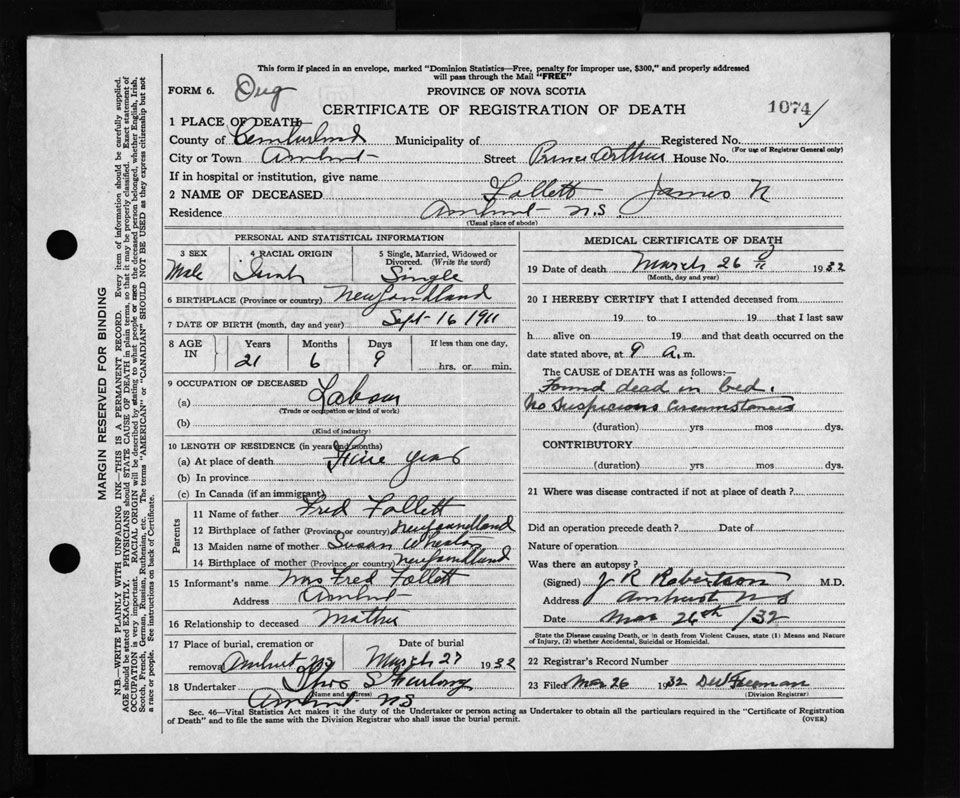 This form if placed in an envelope, marked "Dominion Statistics—Free, penalty for improper use, $300," and properly addressed
will pass through the Mail "FREE"
FORM 6. PROVINCE OF NOVA SCOTIA
CERTIFICATE OF REGISTRATION OF DEATH 1074
1 PLACE OF DEATH—
County of Cumberland Municipality of Registered No.
(For use of Registrar General only)
City or Town Amherst Street Prince Arthur House No.
If in hospital or institution, give name
2 NAME OF DECEASED Follett James N
Residence Amherst N.S.
(Usual place of abode)
PERSONAL AND STATISTICAL INFORMATION
3 SEX 4 RACIAL ORIGIN 5 Single, Married, Widowed or
Divorced. (Write the word)
Male Irish Single
6 BIRTHPLACE (Province or country) Newfoundland
7 DATE OF BIRTH (month, day and year) Sept 16 1911
8 AGE IN Years Months Days If less than one day,
21 6 9 hrs. or min.
9 OCCUPATION OF DECEASED
(a) Labour
(Trade or occupation or kind of work)
(b)
(Kind of industry)
10 LENGTH OF RESIDENCE (in years and months)
(a) At place of death years
(b) In province
(c) In Canada (if an immigrant)
Parents
11 Name of father Fred Follett
12 Birthplace of father (Province or country) Newfoundland
13 Maiden name of mother Susan
14 Birthplace of mother (Province or country) Newfoundland
15 Informant's name Mrs Fred Follett
Address Amherst
16 Relationship to deceased Mother
17 Place of burial, cremation or Date of burial
removal Amherst March 27 1932
18 Undertaker S Furlong
(Name and address)
Amherst NS
MEDICAL CERTIFICATE OF DEATH
19 Date of death March 26 1932
(Month, day and year)
20 I HEREBY CERTIFY that I attended deceased from
19 to 19 that I last saw
h alive on 19 and that death occurred on the
date stated above, at 9 A.m.
The CAUSE of DEATH was as follows:—
Found dead in bed.
No Suspicious Circumstances
(duration) yrs mos dys.
CONTRIBUTORY
(duration) yrs mos dys.
21 Where was disease contracted if not at place of death?
Did an operation precede death? Date of
Nature of operation
Was there an autopsy?
(Signed) J R Robertson M.D.
Address Amherst N S
Date Mar 26th /32
State the Disease causing Death, or in death from Violent Causes, state (1) Means and Nature
of Injury, (2) whether Accidental, Suicidal or Homicidal.
22 Registrar's Record Number
23 Filed Mar 26 1932 Freeman
(Division Registrar)
Sec. 46—Vital Statistics Act makes it the duty of the Undertaker or person acting as Undertaker to obtain all the particulars required in the "Certificate of Registration
of Death" and to file the same with the Division Registrar who shall issue the burial permit. (OVER)
MARGIN RESERVED FOR BINDING
N.B.—WRITE PLAINLY WITH UNFADING INK—THIS IS A PERMANENT RECORD. Every item of information should be carefully supplied.
AGE should be stated EXACTLY. PHYSICIANS should STATE CAUSE OF DEATH in plain terms, so that it may be properly classified. Exact statement of
OCCUPATION is very important. RACIAL ORIGIN will be described by stating to what people or race the deceased person belonged, whether English, Irish,
Scotch, French, German, Russian, Ruthenian, etc. The terms "AMERICAN" or "CANADIAN" SHOULD NOT BE USED as they express citizenship but not
a race or people. See instructions on back of Certificate.